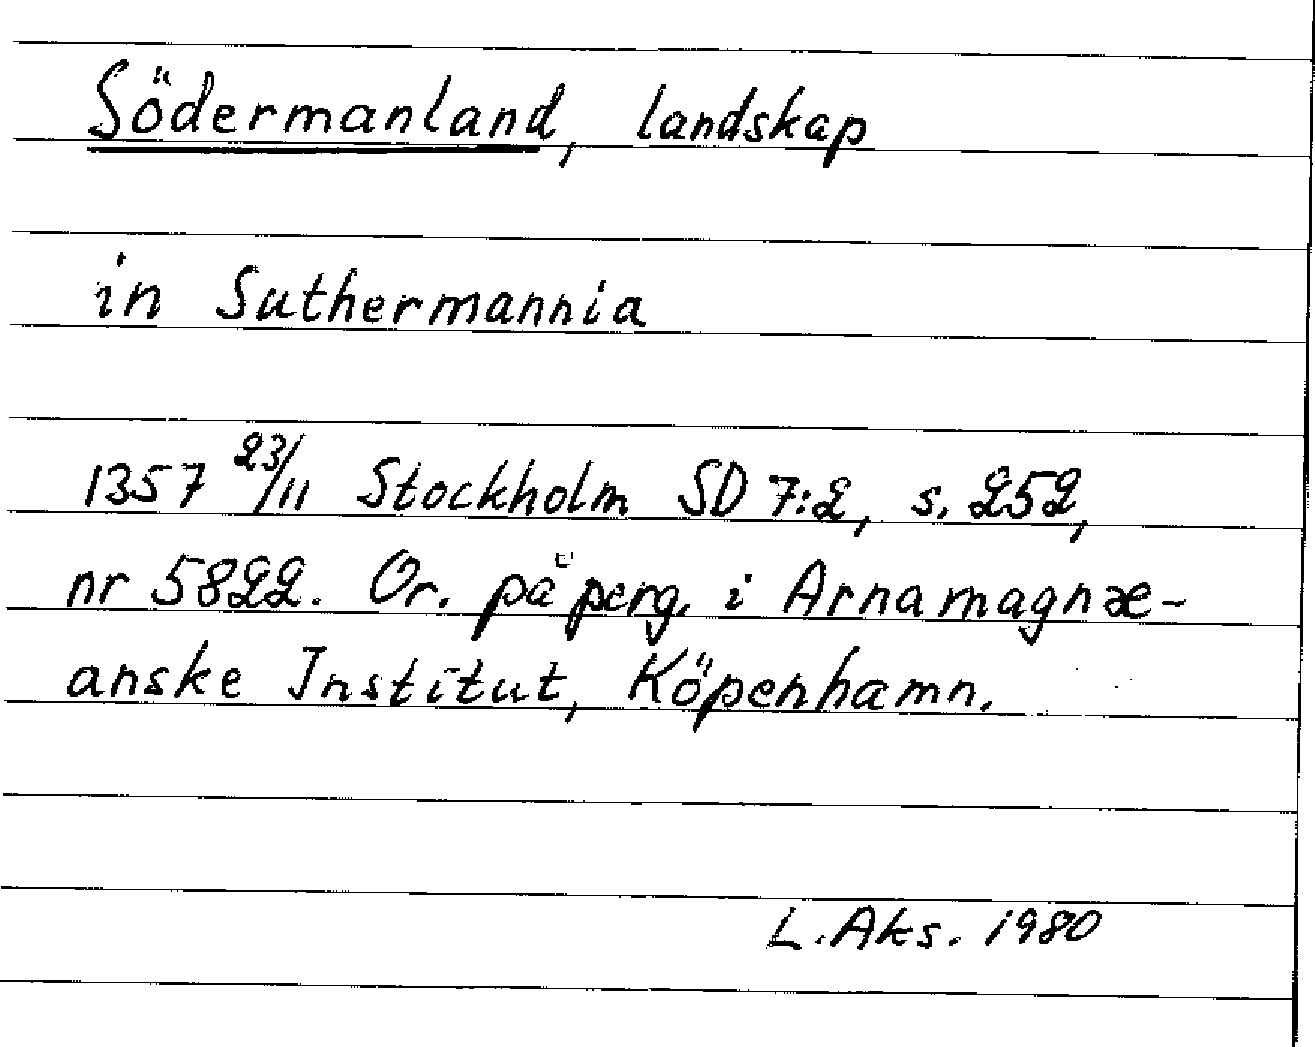 Södermanland, landskap
in Suthermannia
1357 23/11 Stockholm SD 7:2, s. 252,
nr 5822. Or. på perg. i Arnamagnæ-
anske Institut, Köpenhamn.
L. Aks. 1980